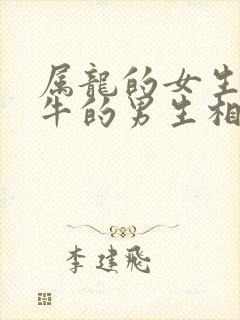 属龍的女生
牛的男生相
李建飛